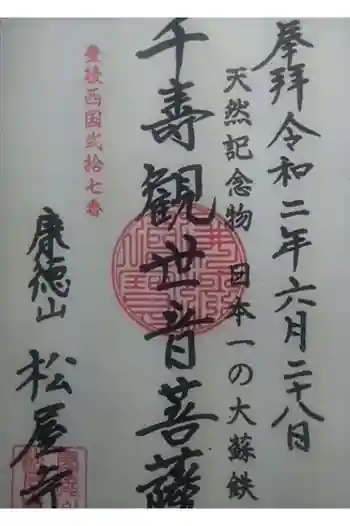 奉拝令和二年六月二十八日
天然記念物 日本一の大蘇鉄
千壽観世音菩薩
豊後西国弐拾七番
康徳山
松屋寺